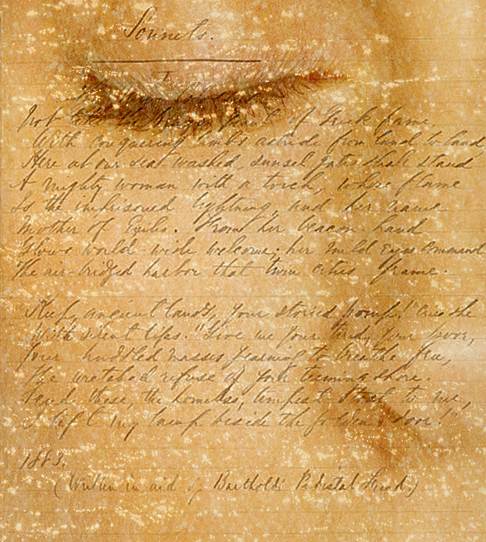 Sonnets.
I.
Not like the brazen giant of Greek fame
With conquering limbs astride from land to land
Here at our sea-washed, sunset gates shall stand
A mighty woman with a torch, whose flame
Is the imprisoned lightning, and her name
Mother of Exiles. From her beacon-hand
Glows world-wide welcome; her mild eyes command
The air-bridged harbor that twin cities frame.
"Keep, ancient lands, your storied pomp!" cries she
With silent lips. "Give me your tired, your poor,
Your huddled masses yearning to breathe free,
The wretched refuse of your teeming shore.
Send these, the homeless, tempest-tost to me,
I lift my lamp beside the golden door!"
1883.
(Written in aid of Bartholdi Pedestal Fund.)